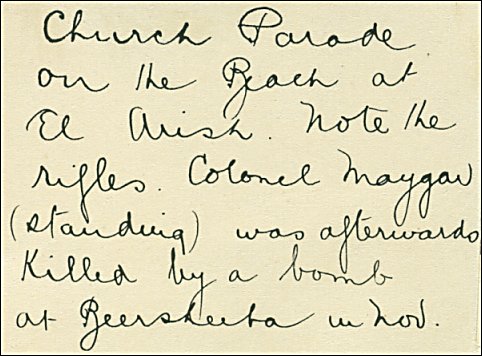 Church Parade
on the Beach at
El Arish. Note the
rifles. Colonel Maygar
(standing) was afterwards
Killed by a bomb
at Beersheeba in Nov.